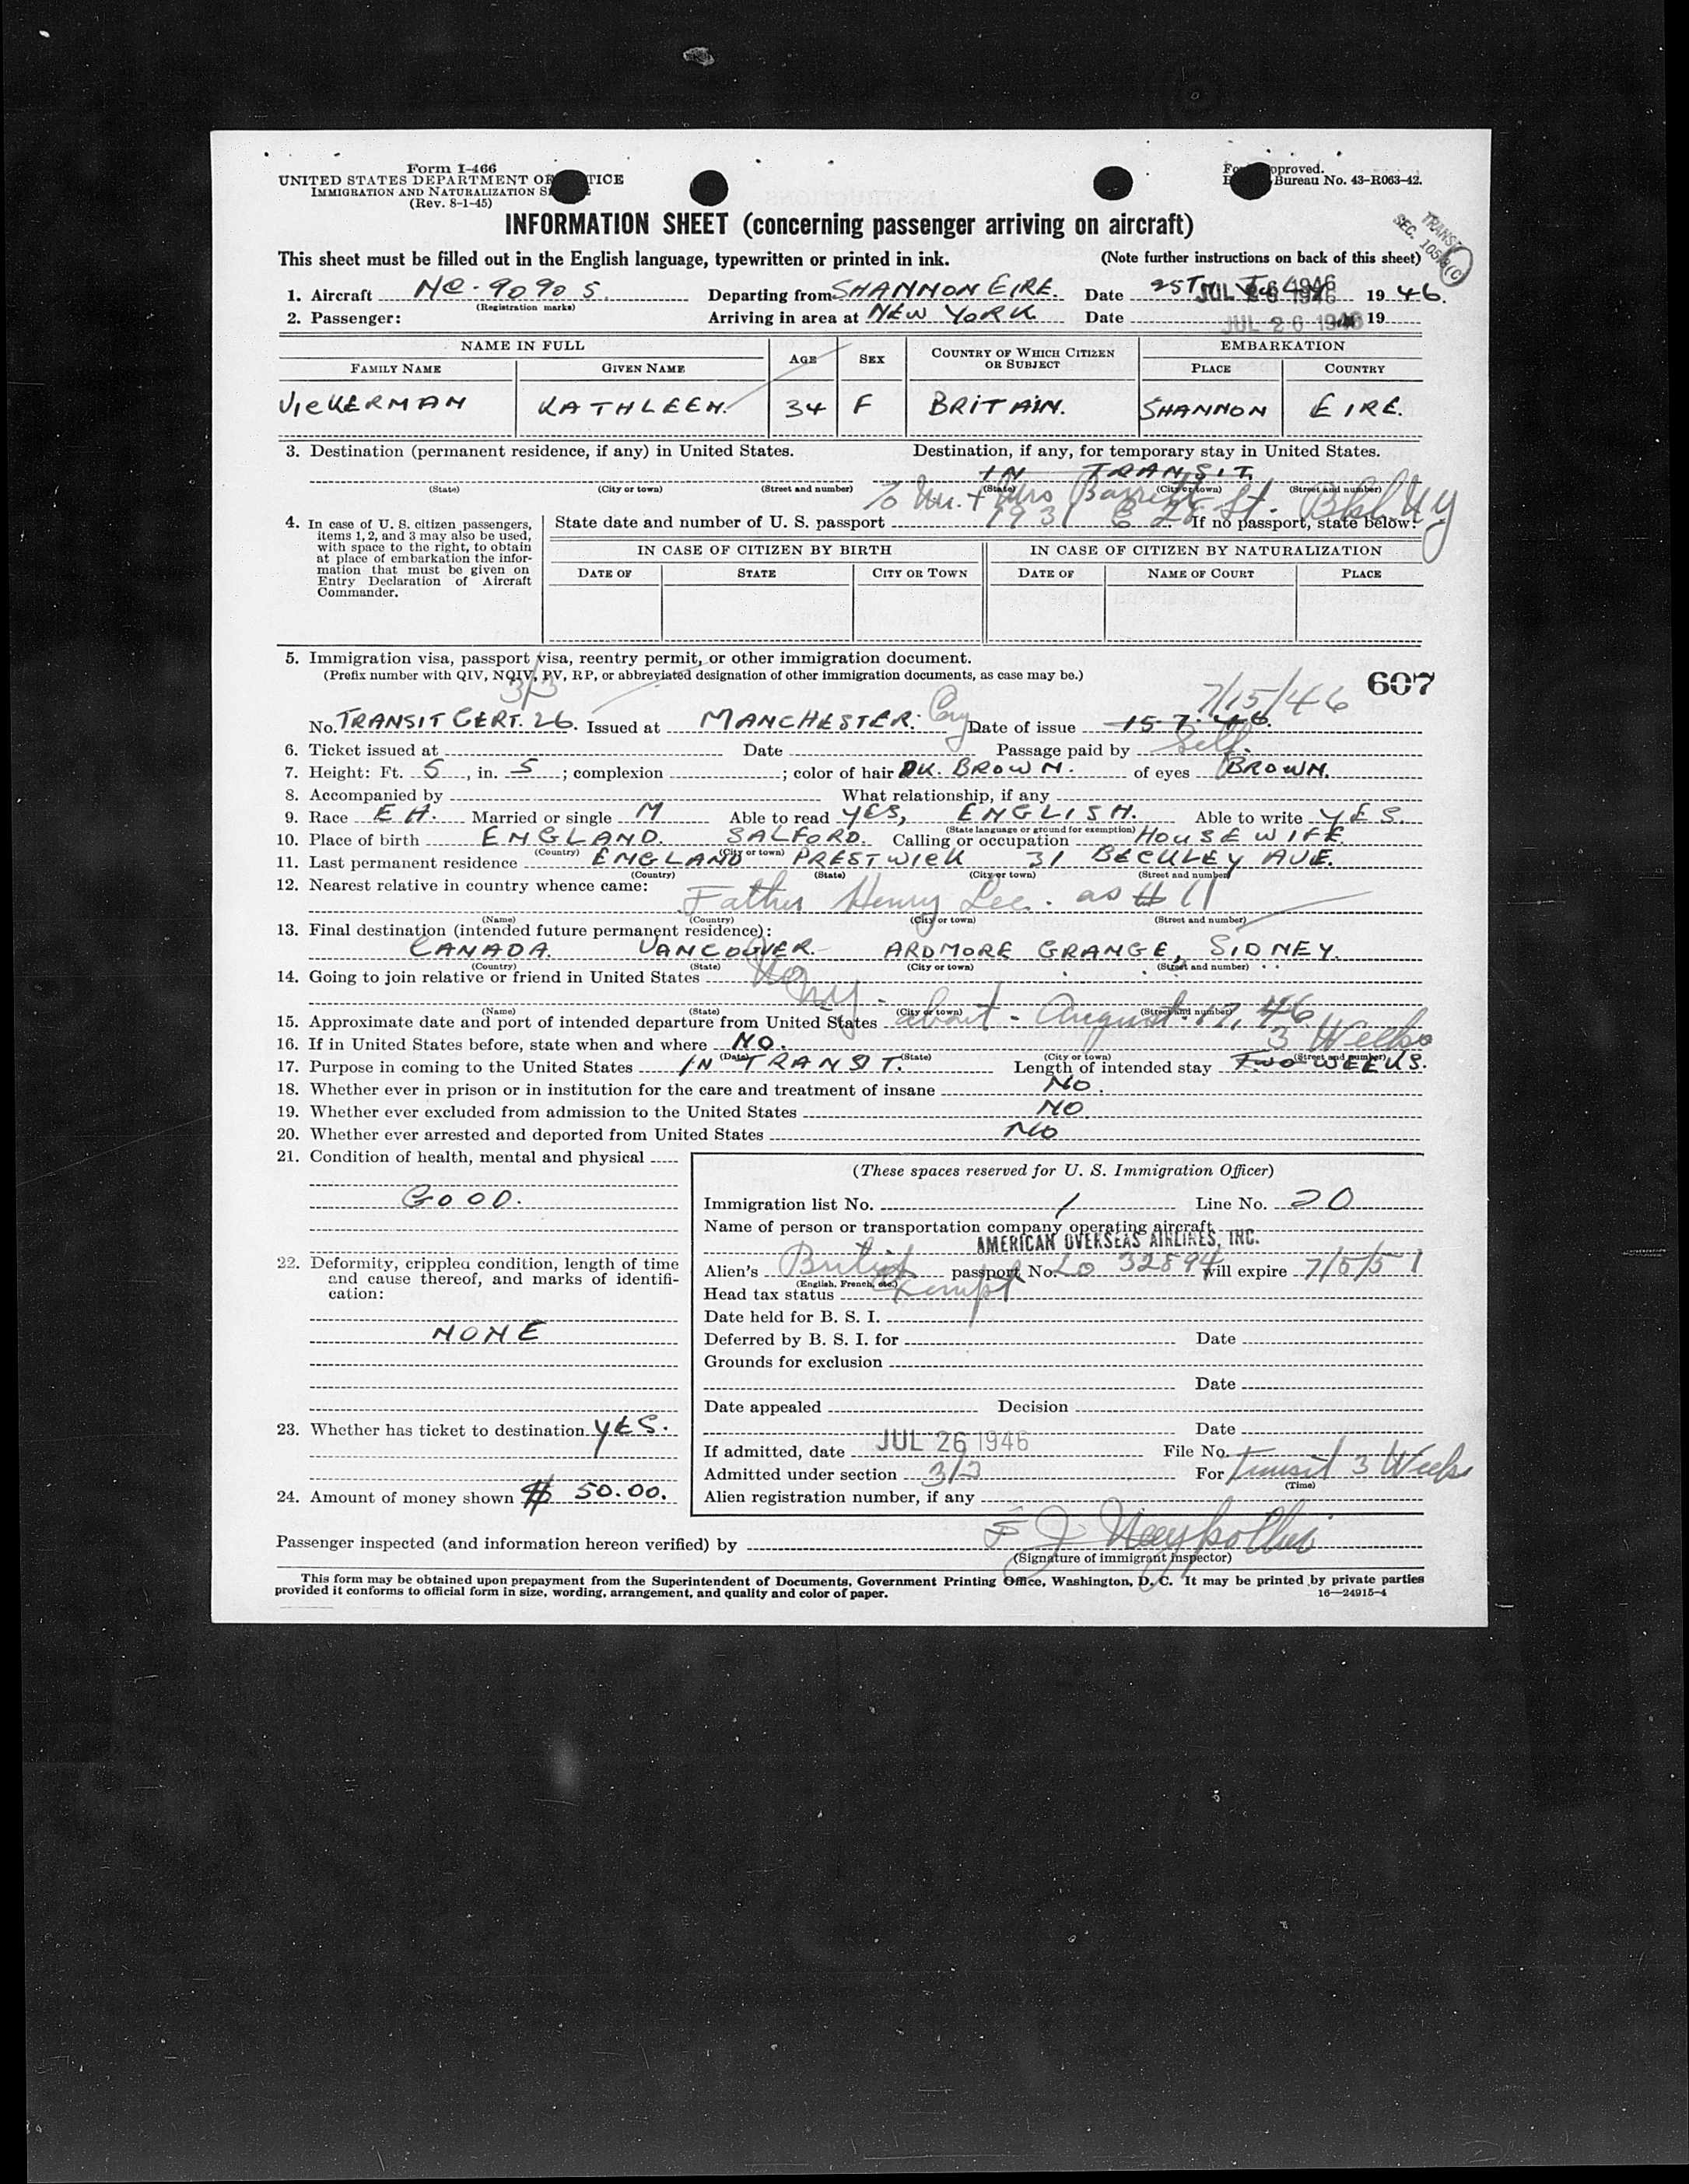 Form I-466
UNITED STATES DEPARTMENT OF TICE
IMMIGRATION AND NATURALIZATION S
(Rev. 8-1-45)
Fo pproved.
B Bureau No. 43-R063-42.
TRANSIT
SEC. 105.3(C)
INFORMATION SHEET (concerning passenger arriving on aircraft)
This sheet must be filled out in the English language, typewritten or printed in ink. (Note further instructions on back of this sheet)
1. Aircraft NC-90905. Departing from SHANNON EIRE. Date 25TH July JUL 26 1946 1946.
(Registration marks)
2. Passenger: Arriving in area at NEW YORK Date JUL 26 1946 19
NAME IN FULL AGE SEX COUNTRY OF WHICH CITIZEN OR SUBJECT EMBARKATION
FAMILY NAME GIVEN NAME PLACE COUNTRY
VICKERMAN KATHLEEN. 34 F BRITAIN. SHANNON EIRE.
3. Destination (permanent residence, if any) in United States. Destination, if any, for temporary stay in United States.
IN TRANSIT.
(State) (City or town) (Street and number) (State) (City or town) (Street and number)
To Mr. + Mrs Barrett
1931 E 28 St. Bkl NY
4. In case of U. S. citizen passengers, items 1, 2, and 3 may also be used, with space to the right, to obtain at place of embarkation the information that must be given on Entry Declaration of Aircraft Commander.
State date and number of U. S. passport If no passport, state below:
IN CASE OF CITIZEN BY BIRTH IN CASE OF CITIZEN BY NATURALIZATION
DATE OF STATE CITY OR TOWN DATE OF NAME OF COURT PLACE
5. Immigration visa, passport visa, reentry permit, or other immigration document.
(Prefix number with QIV, NQIV, PV, RP, or abbreviated designation of other immigration documents, as case may be.)
607
3/3 7/15/46
No. TRANSIT CERT. 26. Issued at MANCHESTER. Eng Date of issue 15-7-46.
6. Ticket issued at Date Passage paid by Self.
7. Height: Ft. 5, in. 5; complexion ; color of hair DK. BROWN. of eyes BROWN.
8. Accompanied by What relationship, if any
9. Race EH. Married or single M Able to read YES, ENGLISH. Able to write YES.
(State language or ground for exemption)
10. Place of birth ENGLAND. SALFORD. Calling or occupation HOUSEWIFE.
(Country) (City or town)
11. Last permanent residence ENGLAND PRESTWICH 31 BECKLEY AVE.
(Country) (State) (City or town) (Street and number)
12. Nearest relative in country whence came:
Father Henry Lee. as # 11
(Name) (Country) (City or town) (Street and number)
13. Final destination (intended future permanent residence):
CANADA. VANCOUVER. ARDMORE GRANGE, SIDNEY.
(Country) (State) (City or town) (Street and number)
14. Going to join relative or friend in United States No
(Name) (State) (City or town) (Street and number)
15. Approximate date and port of intended departure from United States NY - about - August 17, 46
16. If in United States before, state when and where NO. 3 Weeks
(Date) (State) (City or town) (Street and number)
17. Purpose in coming to the United States IN TRANSIT. Length of intended stay TWO WEEKS.
18. Whether ever in prison or in institution for the care and treatment of insane NO.
19. Whether ever excluded from admission to the United States NO
20. Whether ever arrested and deported from United States NO
21. Condition of health, mental and physical
GOOD.
22. Deformity, crippled condition, length of time and cause thereof, and marks of identification:
NONE
23. Whether has ticket to destination YES.
24. Amount of money shown $ 50.00.
(These spaces reserved for U. S. Immigration Officer)
Immigration list No. 1 Line No. 20
Name of person or transportation company operating aircraft
AMERICAN OVERSEAS AIRLINES, INC.
Alien's British passport No. Lo 32894 will expire 7/5/51
(English, French, etc.)
Head tax status Exempt
Date held for B. S. I.
Deferred by B. S. I. for Date
Grounds for exclusion
Date
Date appealed Decision
Date
If admitted, date JUL 26 1946 File No.
Admitted under section 3/3 For Transit 3 Weeks
(Time)
Alien registration number, if any
Passenger inspected (and information hereon verified) by F J
(Signature of immigrant inspector)
This form may be obtained upon prepayment from the Superintendent of Documents, Government Printing Office, Washington, D. C. It may be printed by private parties
provided it conforms to official form in size, wording, arrangement, and quality and color of paper. 16—24915-4